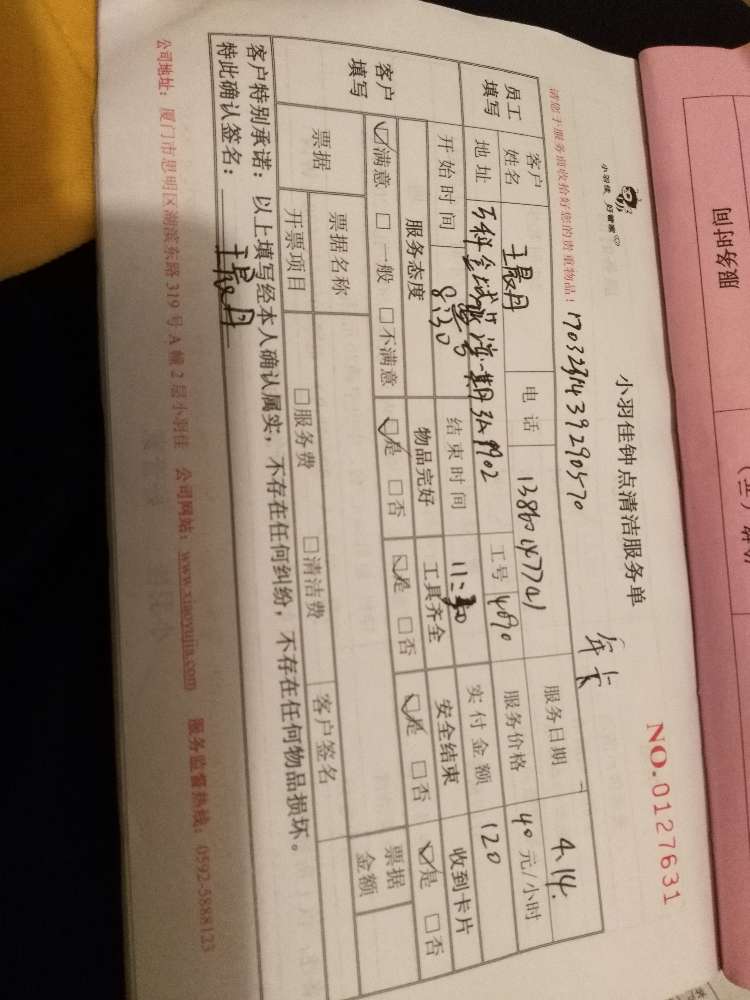 小羽佳 好管家
小羽佳钟点清洁服务单
NO.0127631
年卡
请您于服务前收拾好您的贵重物品！
员工填写 客户姓名 王晨丹 电话 服务日期 4.14.
地址 工号 4090 服务价格 40 元/小时
开始时间 8:30 结束时间 11:30 实付金额 120
客户填写 服务态度 物品完好 工具齐全 安全结束 收到卡片
☑满意 □一般 □不满意 ☑是 □否 ☑是 □否 ☑是 □否 ☑是 □否
票据 票据名称 客户签名 票据金额
开票项目 □服务费 □清洁费
客户特别承诺：以上填写经本人确认属实，不存在任何纠纷，不存在任何物品损坏。
特此确认签名：王晨丹
公司地址：厦门市思明区湖滨东路 319 号 A 幢 2 层小羽佳 公司网站：www.xiaoyujia.com 服务监督热线：0592-5888123
服务时间